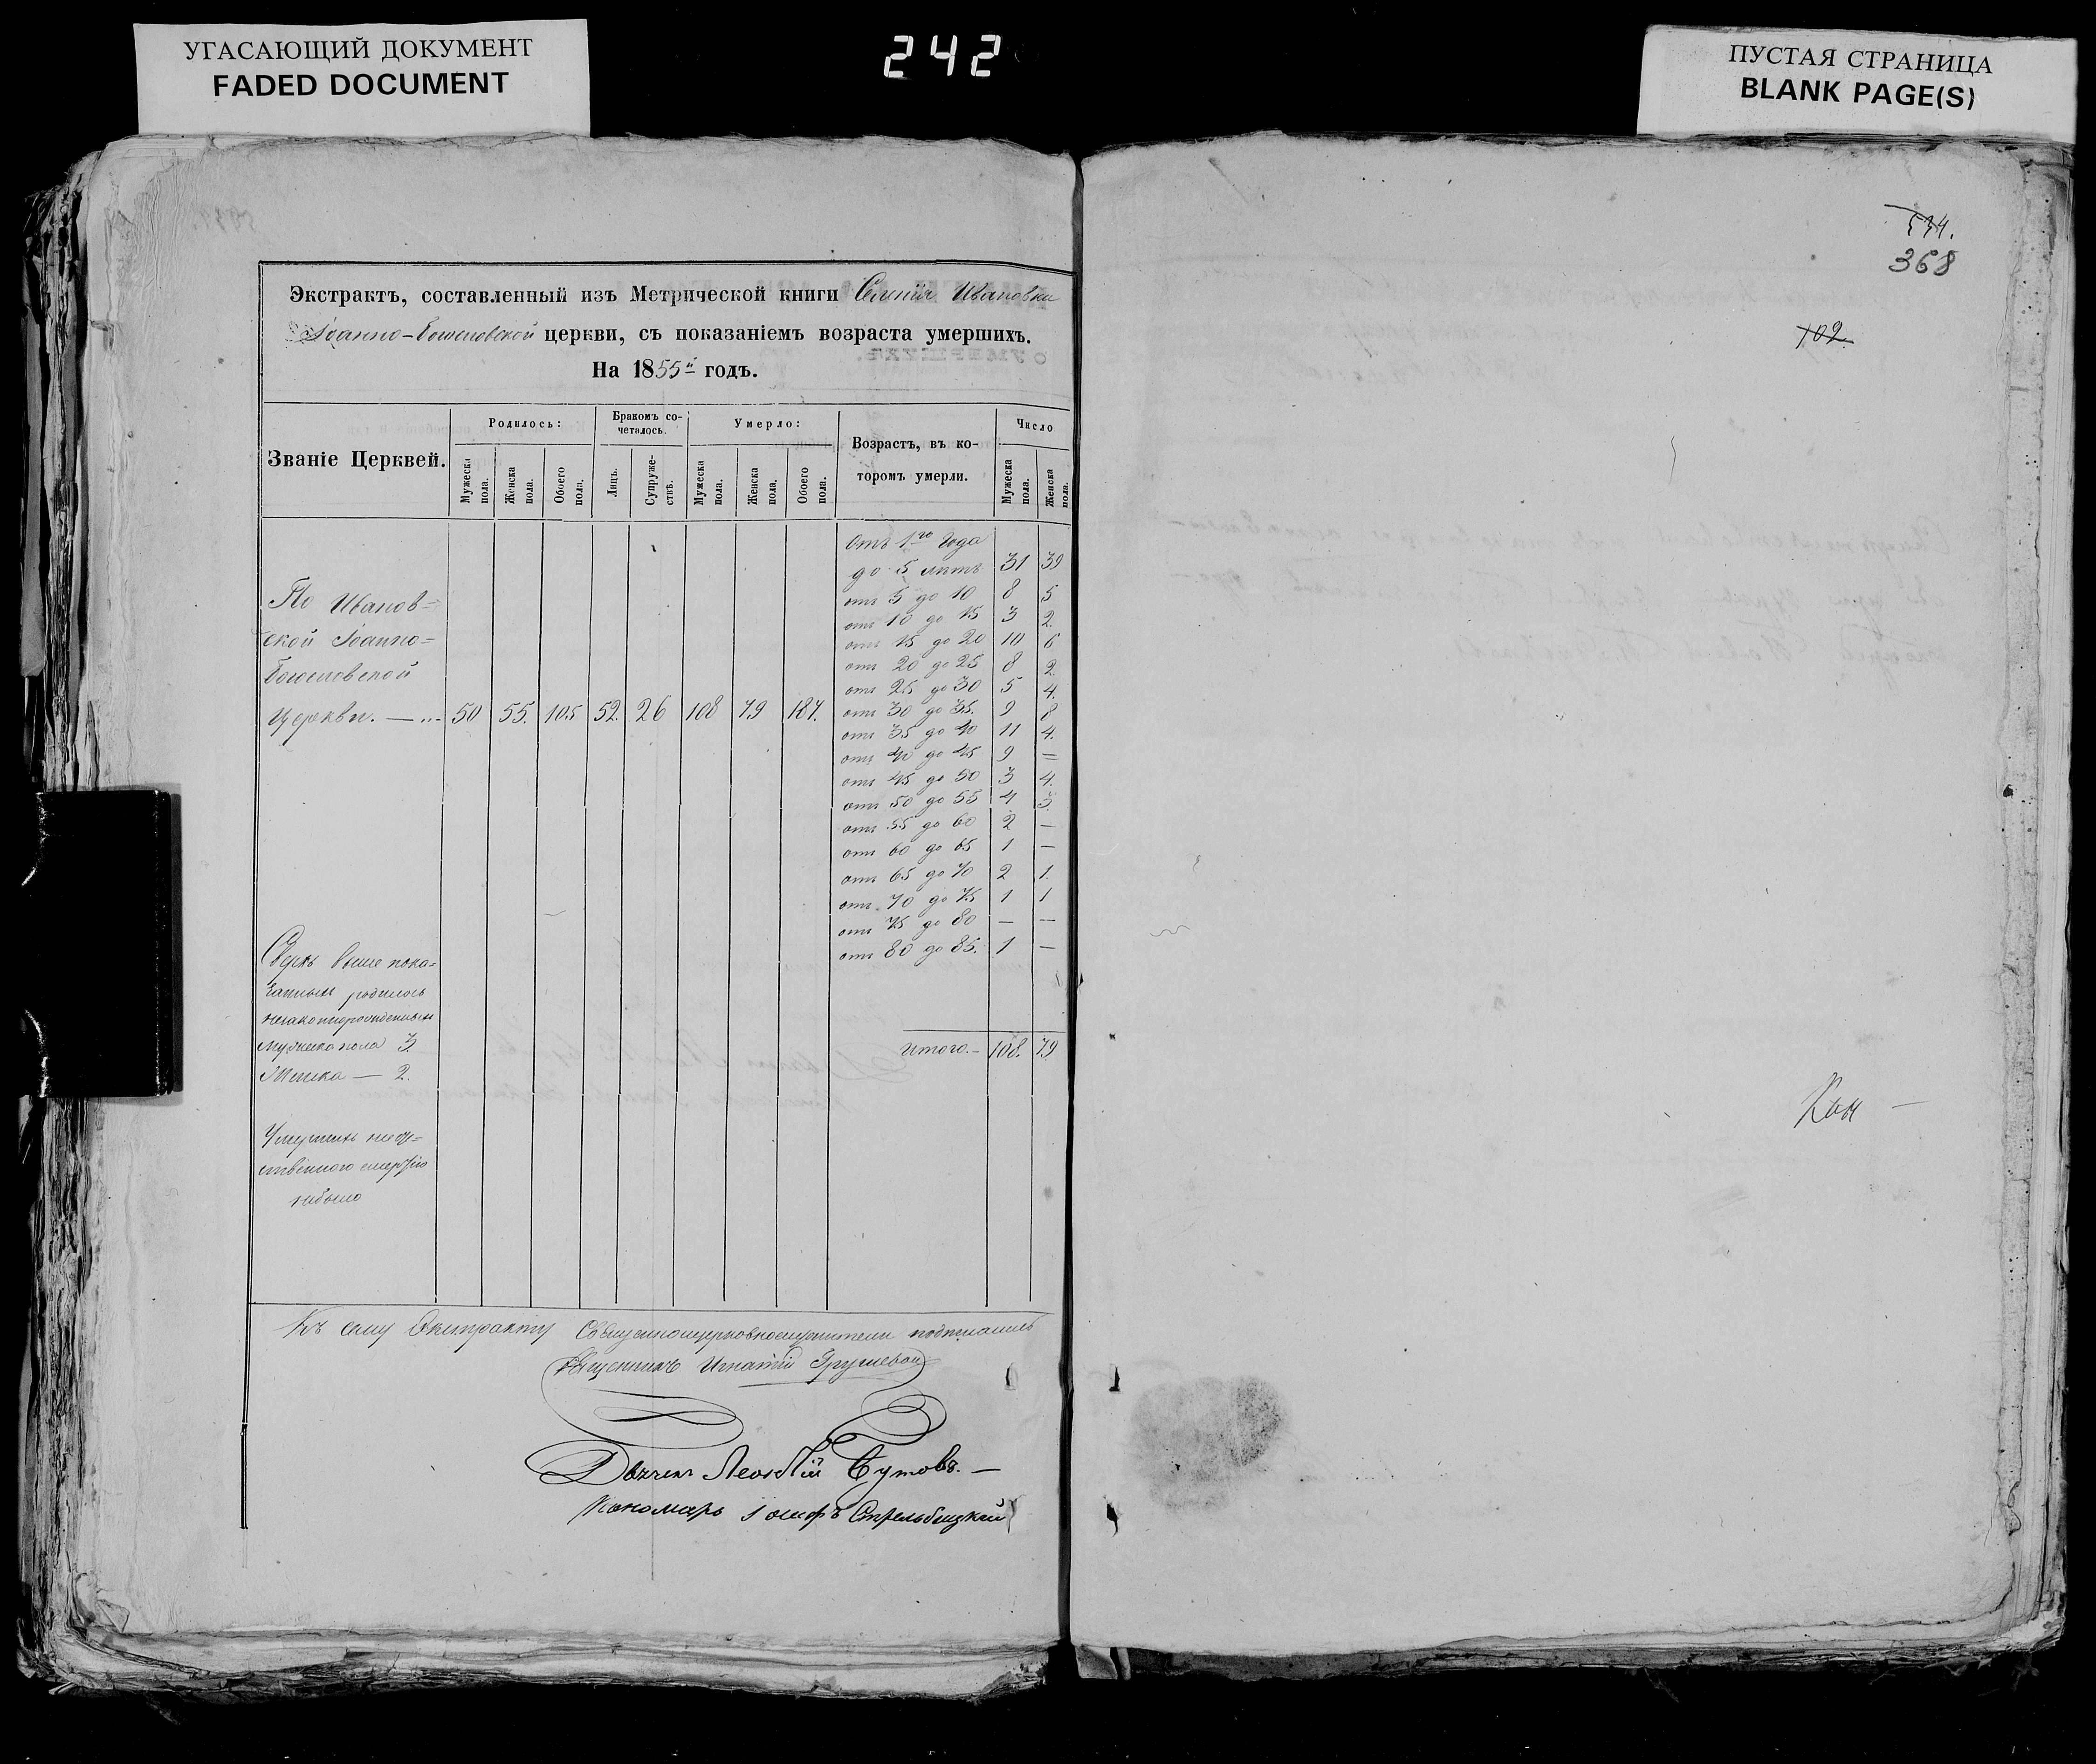 УГАСАЮЩИЙ ДОКУМЕНТ
FADED DOCUMENT
242
ПУСТАЯ СТРАНИЦА
BLANK PAGE(S)
534.
368
102.
Экстрактъ, составленный изъ Метрической книги Селенія Ивановки
Іоанно-Богословской церкви, съ показаніемъ возраста умершихъ.
На 1855й годъ.
Званіе Церквей.
Родилось:
Мужеска пола.
Женска пола.
Обоего пола.
Бракомъ со-
четалось.
Лицъ.
Супруже-
ствъ.
Умерло:
Мужеска пола.
Женска пола.
Обоего пола.
Возрастъ, въ ко-
торомъ умерли.
Число
Мужеска пола.
Женска пола.
По Иванов=
ской Іоанно=
Богословской
Церкви. — 50 55. 105 52. 26 108 79 187.
Отъ 1го года
до 5 лѣтъ 31 39
отъ 5 до 10 8 5
отъ 10 до 15 3 2.
отъ 15 до 20 10 6
отъ 20 до 25 8 2
отъ 25 до 30 5 4.
отъ 30 до 35. 9 8
отъ 35 до 40 11 4.
отъ 40 до 45 9 =
отъ 45 до 50 3 4.
отъ 50 до 55 4 3.
отъ 55 до 60 2 —
отъ 60 до 65 1 —
отъ 65 до 70 2 1.
отъ 70 до 75 1 1
отъ 75 до 80 — —
отъ 80 до 85. 1 —
Итого.- 108. 79
Сверхъ выше пока=
занныхъ родилось
незаконнорожденныхъ
мужеска пола 3.
Женска — 2.
Умершихъ
смертію
небыло
Къ сему Экстракту Священноцерковнослужители подписались
Священникъ Игнатій
Дьячекъ Бутовъ. —
Пономарь Іосифъ Стрельбицкій